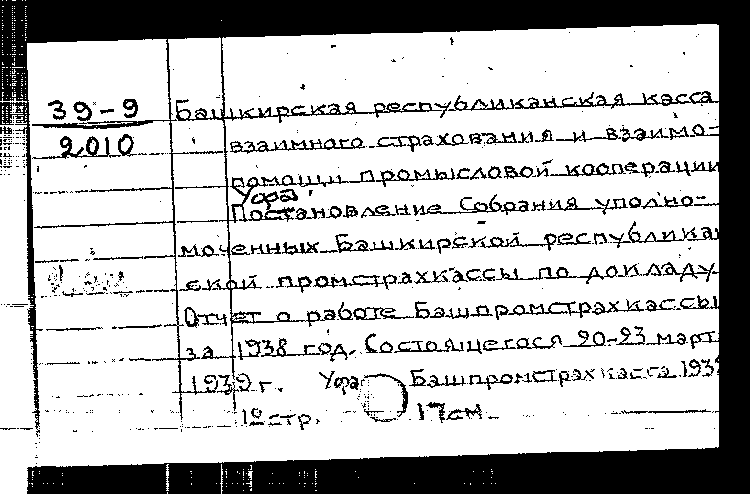 39-9
2010
Башкирская республиканская касса
взаимного страхования и взаимо-
помощи промысловой кооперации
Уфа.
Постановление Собрания уполно-
моченных Башкирской республика
ской промстрахкассы по докладу
Отчет о работе Башпромстрахкассы
за 1938 год. Состоящегося 20-23 март
1939 г. Уфа Башпромстрахкасса 193
12 стр. 17 см.